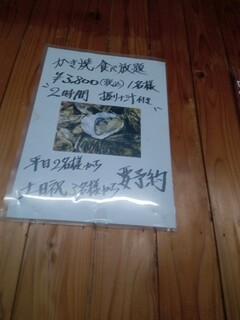 かき焼食べ放題
¥3,800(税込)1名様
2時間 握り+汁付き
平日2名様から
土日祝3名様から 要予約